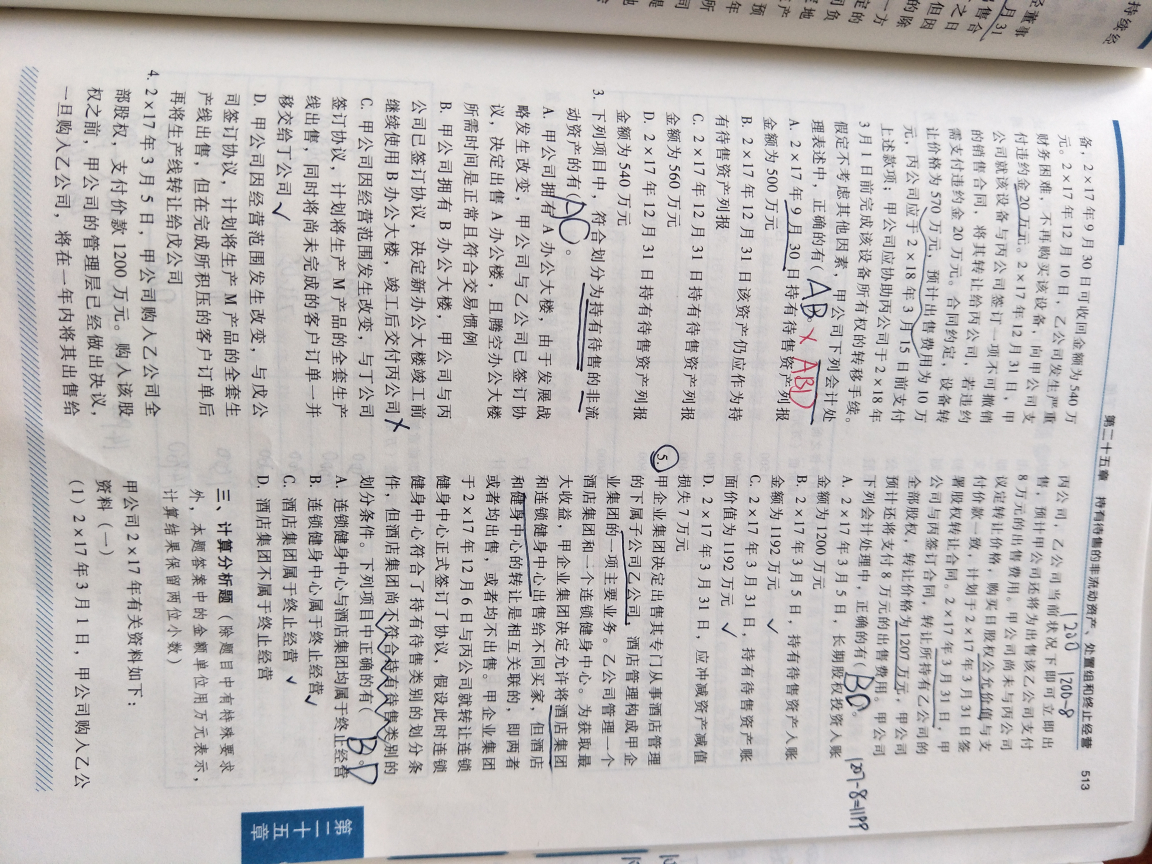 第二十五章 持有待售的非流动资产、处置组和终止经营 513
备，2×17年9月30日可收回金额为540万
元。2×17年12月10日，乙公司发生严重
财务困难，不再购买该设备，向甲公司支
付违约金20万元。2×17年12月31日，甲
公司就该设备与丙公司签订一项不可撤销
的销售合同，将其转让给丙公司，若违约
需支付违约金20万元。合同约定，设备转
让价格为570万元，预计出售费用为10万
元，丙公司应于2×18年3月15日前支付
上述款项；甲公司应协助丙公司于2×18年
3月1日前完成该设备所有权的转移手续。
假定不考虑其他因素，甲公司下列会计处
理表述中，正确的有（AB）。× ABD
A. 2×17年9月30日持有待售资产列报
金额为500万元
B. 2×17年12月31日该资产仍应作为持
有待售资产列报
C. 2×17年12月31日持有待售资产列报
金额为560万元
D. 2×17年12月31日持有待售资产列报
金额为540万元
3. 下列项目中，符合划分为持有待售的非流
动资产的有（DC）。
A. 甲公司拥有A办公大楼，由于发展战
略发生改变，甲公司与乙公司已签订协
议，决定出售A办公楼，且腾空办公大楼
所需时间是正常且符合交易惯例
B. 甲公司拥有B办公大楼，甲公司与丙
公司已签订协议，决定新办公大楼竣工前
继续使用B办公大楼，竣工后交付丙公司×
C. 甲公司因经营范围发生改变，与丁公司
签订协议，计划将生产M产品的全套生产
线出售，同时将尚未完成的客户订单一并
移交给丁公司✓
D. 甲公司因经营范围发生改变，与戊公
司签订协议，计划将生产M产品的全套生
产线出售，但在完成所积压的客户订单后
再将生产线转让给戊公司
4. 2×17年3月5日，甲公司购入乙公司全
部股权，支付价款1200万元。购入该股
权之前，甲公司的管理层已经做出决议，
一旦购入乙公司，将在一年内将其出售给
丙公司，乙公司当前状况下即可立即出
售，预计甲公司还将为出售该乙公司支付
8万元的出售费用。甲公司尚未与丙公司
议定转让价格，购买日股权公允价值与支
付价款一致，计划于2×17年3月31日签
署股权转让合同。2×17年3月31日，甲
公司与丙签订合同，转让所持有乙公司的
全部股权，转让价格为1207万元，甲公司
预计还将支付8万元的出售费用。甲公司
下列会计处理中，正确的有（BC）。
1200-8
1207-8=1199
A. 2×17年3月5日，长期股权投资入账
金额为1200万元
B. 2×17年3月5日，持有待售资产入账
金额为1192万元✓
C. 2×17年3月31日，持有待售资产账
面价值为1192万元✓
D. 2×17年3月31日，应冲减资产减值
损失7万元
5. 甲企业集团决定出售其专门从事酒店管理
的下属子公司乙公司，酒店管理构成甲企
业集团的一项主要业务。乙公司管理一个
酒店集团和一个连锁健身中心。为获取最
大收益，甲企业集团决定允许将酒店集团
和连锁健身中心出售给不同买家，但酒店
和健身中心的转让是相互关联的，即两者
或者均出售，或者均不出售。甲企业集团
于2×17年12月6日与丙公司就转让连锁
健身中心正式签订了协议，假设此时连锁
健身中心符合了持有待售类别的划分条
件，但酒店集团尚不符合持有待售类别的
划分条件。下列项目中正确的有（BD）。
A. 连锁健身中心与酒店集团均属于终止经营
B. 连锁健身中心属于终止经营✓
C. 酒店集团属于终止经营✓
D. 酒店集团不属于终止经营
三、计算分析题（除题目中有特殊要求
外，本题答案中的金额单位用万元表示，
计算结果保留两位小数）
甲公司2×17年有关资料如下：
资料（一）
（1）2×17年3月1日，甲公司购入乙公
第二十五章